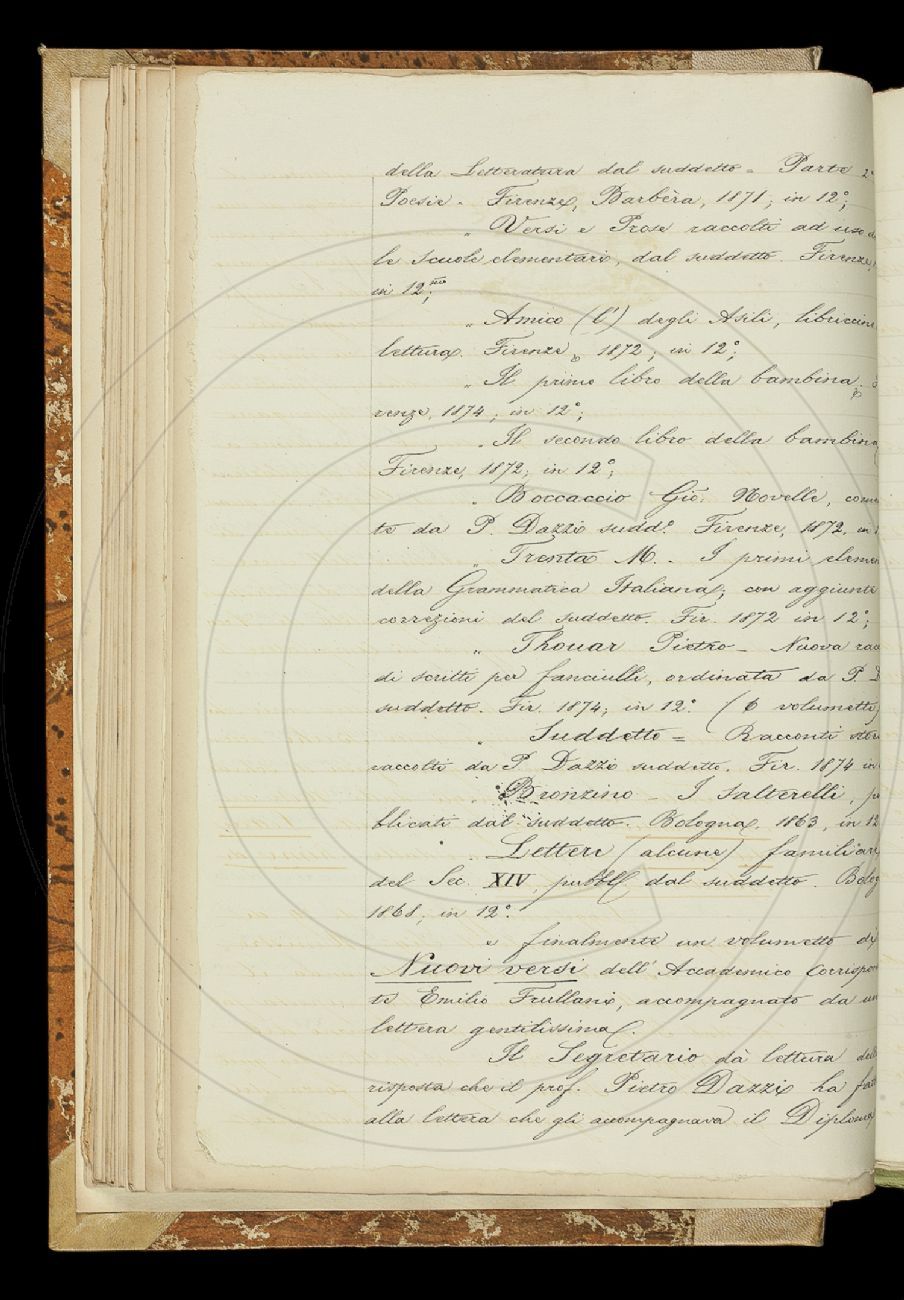 della Letteratura dal suddetto = Parte 2ª
Poesie. Firenze, Barbèra, 1871; in 12°;
„ Versi e Prose raccolti ad uso de
le scuole elementari, dal suddetto. Firenze,
in 12mo;
„ Amico (l') degli Asili, libriccin
lettura. Firenze, 1872; in 12°;
„ Il primo libro della bambina.
renze, 1874; in 12°;
„ Il secondo libro della bambina
Firenze, 1872; in 12°;
„ Boccaccio Gio. Novelle, com
to da P. Dazzi sudd.° Firenze, 1872, in
„ Trenta M. - I primi elemen
della Grammatica Italiana; con aggiunte
correzioni del suddetto. Fir. 1872 in 12°;
„ Thouar Pietro - Nuova rac
di scritti per fanciulli, ordinata da P. D
suddetto. Fir. 1874; in 12° (6 volumetti)
„ Suddetto = Racconti stor
raccolti da P. Dazzi suddetto. Fir. 1874 in
„ Bronzino - I Salterelli, pu
blicati dal suddetto. Bologna, 1863, in 12
„ Lettere (alcune) familiari
del Sec. XIV, pubbl. dal suddetto. Bolog
1868; in 12°.
e finalmente un volumetto di
Nuovi versi dell'Accademico Corrispon
te Emilio Frullani, accompagnato da un
lettera gentilissima.
Il Segretario dà lettura dell
risposta che il prof. Pietro Dazzi ha fatt
alla lettera che gli accompagnava il Diploma